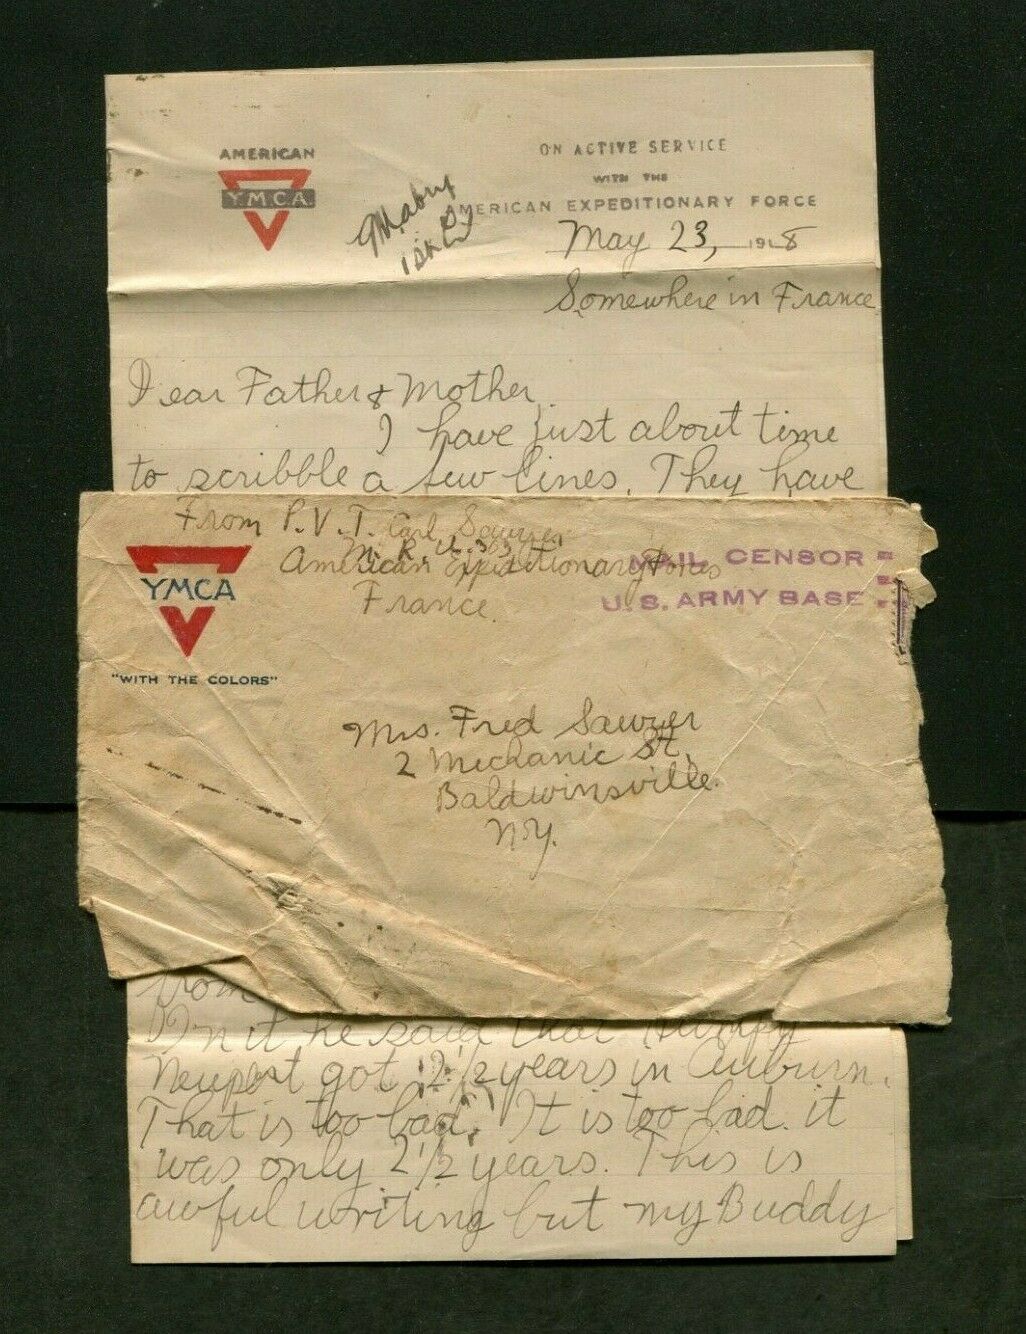 AMERICAN
Y.M.C.A.
ON ACTIVE SERVICE
WITH THE
AMERICAN EXPEDITIONARY FORCE
May 23, 1918
Somewhere in France
Dear Father & Mother,
I have just about time
to scribble a few lines. They have
From P.V.T. Carl Sawyer
American Expeditionary Forces
France.
YMCA
"WITH THE COLORS"
MAIL CENSOR
U.S. ARMY BASE
Mrs. Fred Sawyer
2 Mechanic St.
Baldwinsville.
N.Y.
from
In it he said that
got 2 1/2 years in Auburn.
That is too bad. It is too bad it
was only 2 1/2 years. This is
awful writing but my Buddy